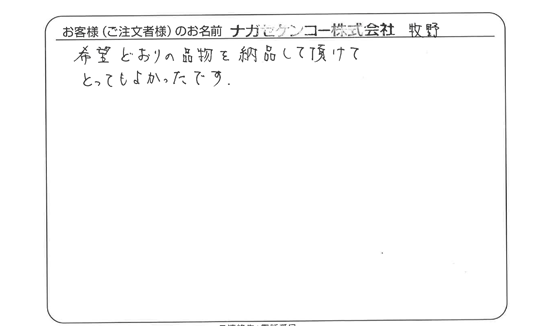 お客様(ご注文者様)のお名前 ナガセケンコー株式会社 牧野
希望どおりの品物を納品して頂けて
とってもよかったです.